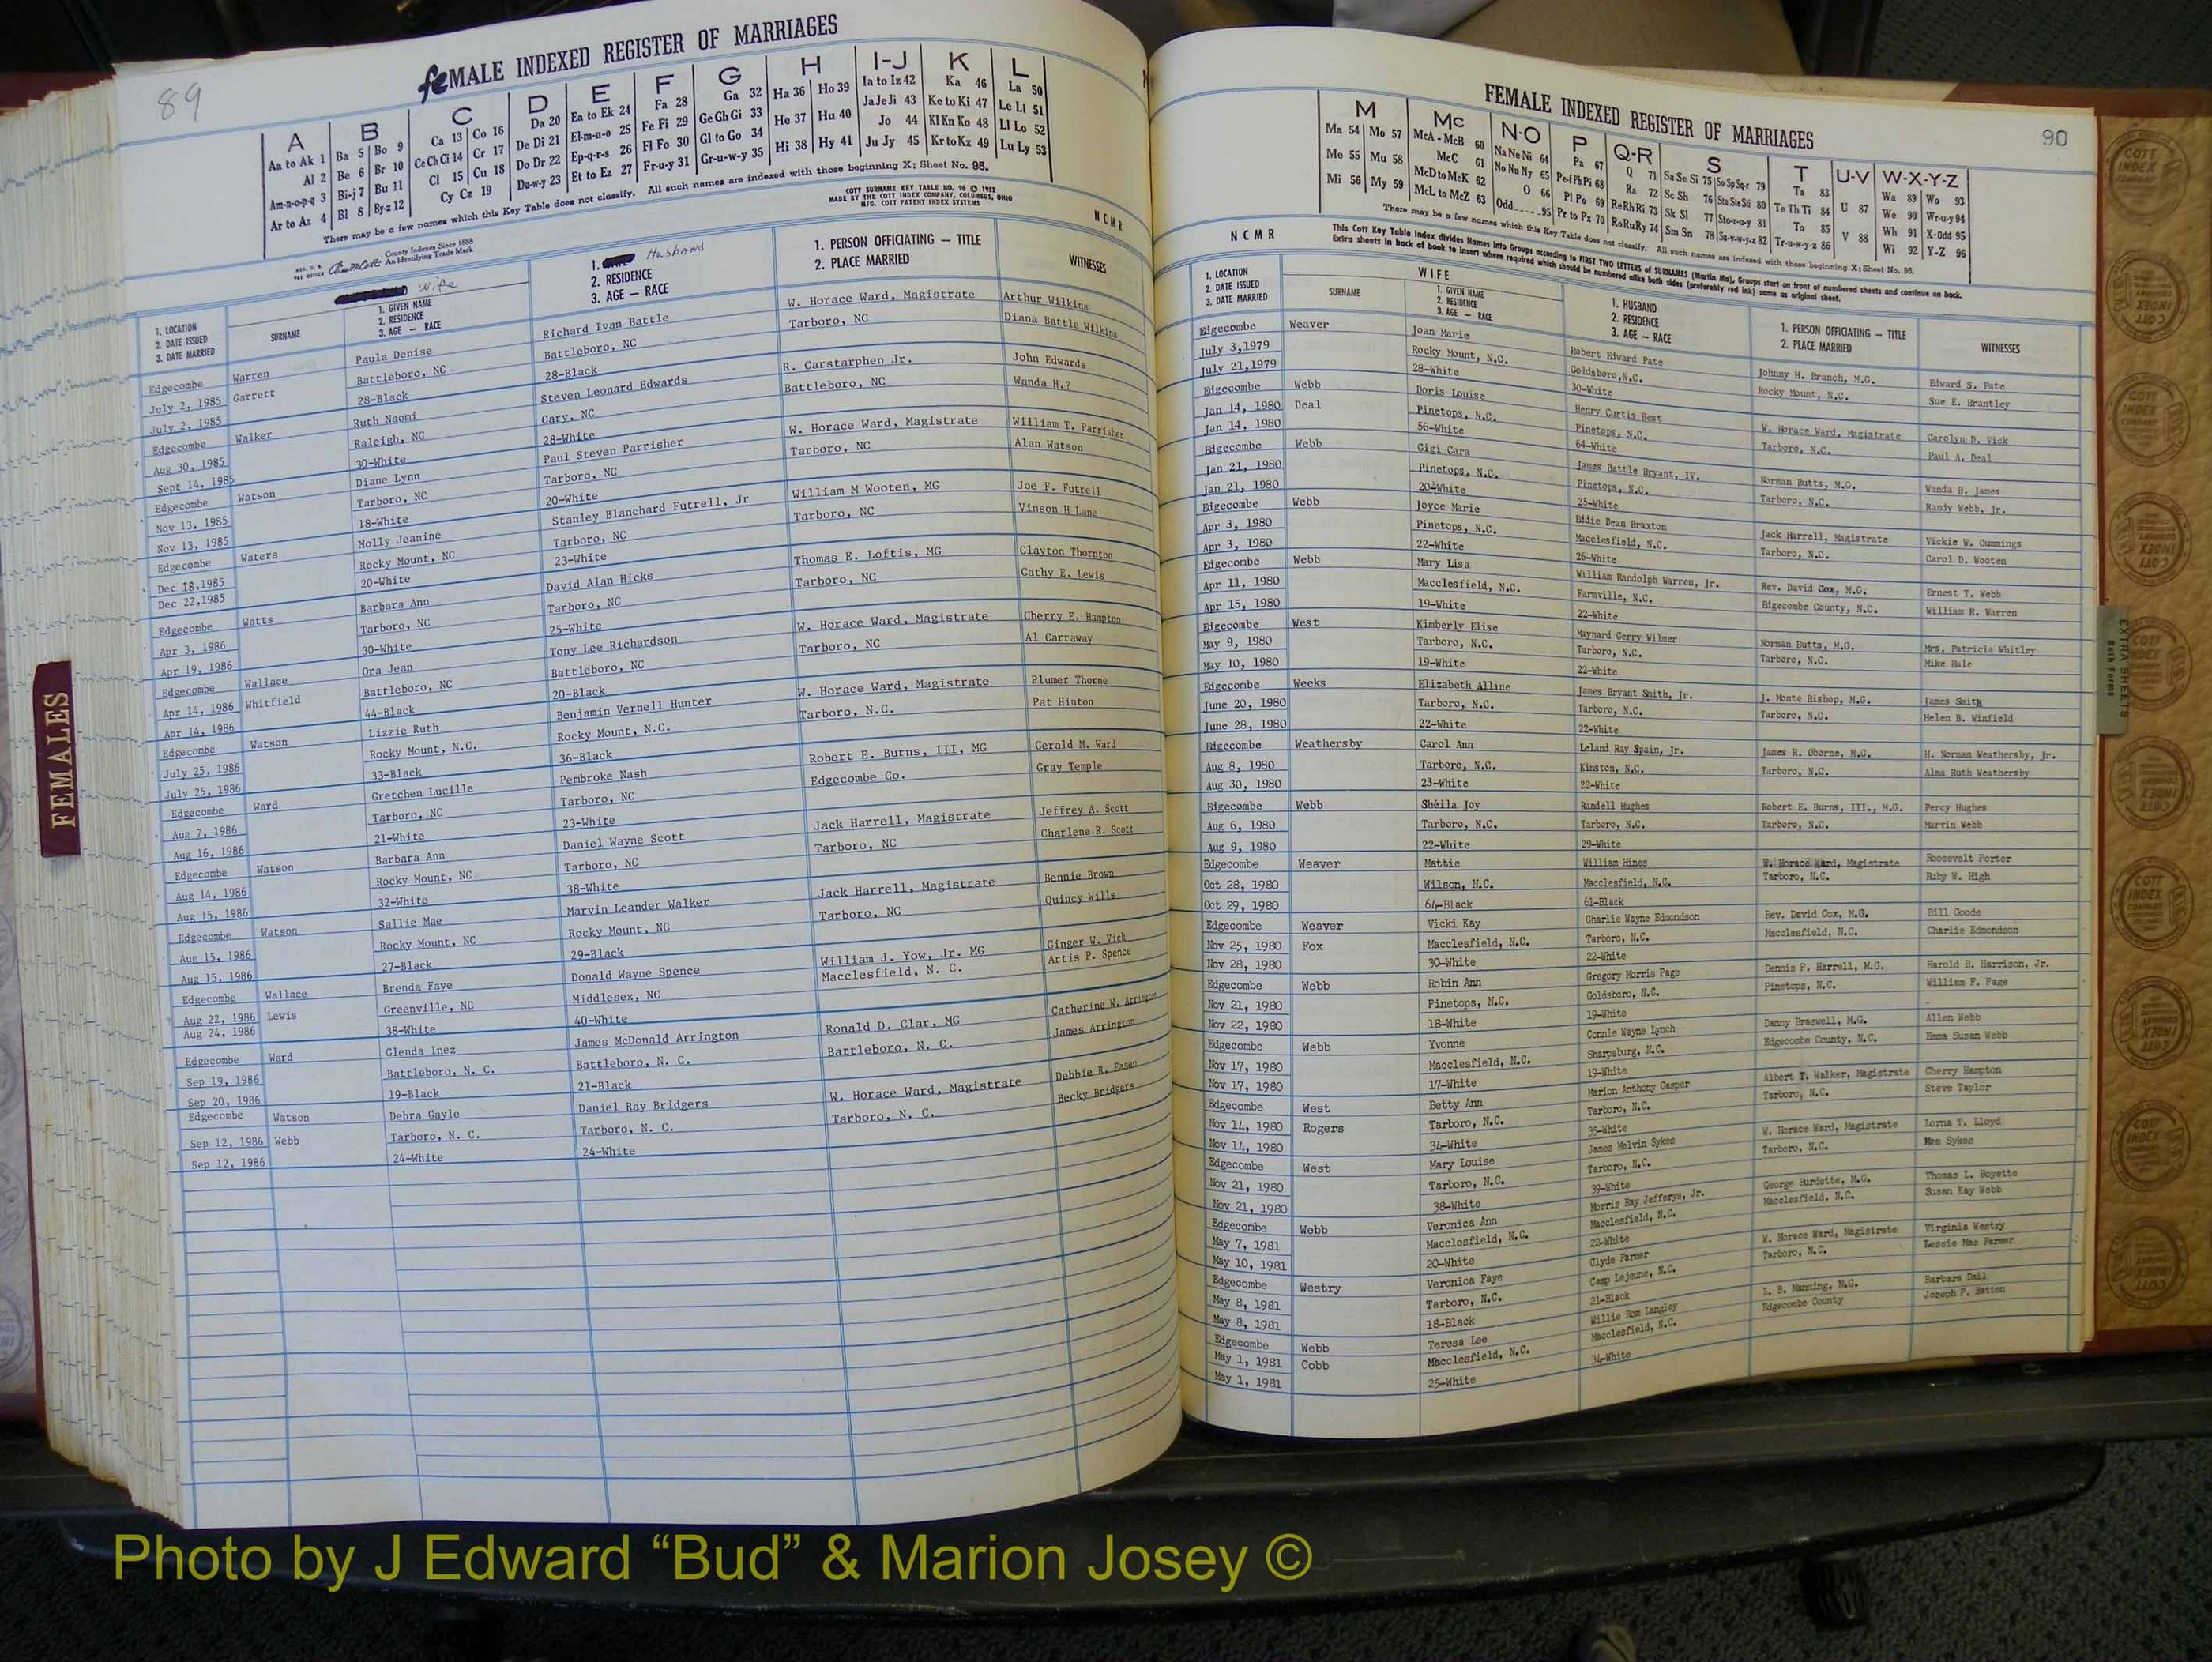 89
feMALE INDEXED REGISTER OF MARRIAGES
A B C D E F G H I-J K L
Aa to Ak 1 Ba 5 Bo 9 Ca 13 Co 16 Da 20 Ea to Ek 24 Fa 28 Ga 32 Ha 36 Ho 39 Ia to Iz 42 Ka 46 La 50
Al 2 Be 6 Br 10 Ce Ch Ci 14 Cr 17 De Di 21 El-m-n-o 25 Fe Fi 29 Ge Gh Gi 33 He 37 Hu 40 Ja Je Ji 43 Ke to Ki 47 Le Li 51
Am-n-o-p-q 3 Bi-j 7 Bu 11 Cl 15 Cu 18 Do Dr 22 Ep-q-r-s 26 Fl Fo 30 Gl to Go 34 Hi 38 Hy 41 Jo 44 Kl Kn Ko 48 Ll Lo 52
Ar to Az 4 Bl 8 By-z 12 Cy Cz 19 Du-w-y 23 Et to Ez 27 Fr-u-y 31 Gr-u-w-y 35 Ju Jy 45 Kr to Kz 49 Lu Ly 53
There may be a few names which this Key Table does not classify. All such names are indexed with those beginning X; Sheet No. 95.
County Indexes Since 1888
An Identifying Trade Mark
COTT SURNAME KEY TABLE NO. 96 © 1952
MADE BY THE COTT INDEX COMPANY, COLUMBUS, OHIO
MFG. COTT PATENT INDEX SYSTEMS
NCMR
1. LOCATION
2. DATE ISSUED
3. DATE MARRIED
Wife
SURNAME
1. GIVEN NAME
2. RESIDENCE
3. AGE — RACE
1. Husband
2. RESIDENCE
3. AGE — RACE
1. PERSON OFFICIATING — TITLE
2. PLACE MARRIED
WITNESSES
Edgecombe Warren Paula Denise Richard Ivan Battle W. Horace Ward, Magistrate Arthur Wilkins
July 2, 1985 Garrett Battleboro, NC Battleboro, NC Tarboro, NC Diana Battle Wilkins
July 2, 1985 28-Black 28-Black
Edgecombe Walker Ruth Naomi Steven Leonard Edwards R. Carstarphen Jr. John Edwards
Aug 30, 1985 Raleigh, NC Cary, NC Battleboro, NC Wanda H.?
Sept 14, 1985 30-White 28-White
Edgecombe Watson Diane Lynn Paul Steven Parrisher W. Horace Ward, Magistrate William T. Parrisher
Nov 13, 1985 Tarboro, NC Tarboro, NC Tarboro, NC Alan Watson
Nov 13, 1985 18-White 20-White
Edgecombe Waters Molly Jeanine Stanley Blanchard Futrell, Jr William M Wooten, MG Joe F. Futrell
Dec 18,1985 Rocky Mount, NC Tarboro, NC Tarboro, NC Vinson H Lane
Dec 22,1985 20-White 23-White
Edgecombe Watts Barbara Ann David Alan Hicks Thomas E. Loftis, MG Clayton Thornton
Apr 3, 1986 Tarboro, NC Tarboro, NC Tarboro, NC Cathy E. Lewis
Apr 19, 1986 30-White 25-White
Edgecombe Wallace Ora Jean Tony Lee Richardson W. Horace Ward, Magistrate Cherry E. Hampton
Apr 14, 1986 Whitfield Battleboro, NC Battleboro, NC Tarboro, NC Al Carraway
Apr 14, 1986 44-Black 20-Black
Edgecombe Watson Lizzie Ruth Benjamin Vernell Hunter W. Horace Ward, Magistrate Plumer Thorne
July 25, 1986 Rocky Mount, N.C. Rocky Mount, N.C. Tarboro, N.C. Pat Hinton
July 25, 1986 33-Black 36-Black
Edgecombe Ward Gretchen Lucille Pembroke Nash Robert E. Burns, III, MG Gerald M. Ward
Aug 7, 1986 Tarboro, NC Tarboro, NC Edgecombe Co. Gray Temple
Aug 16, 1986 21-White 23-White
Edgecombe Watson Barbara Ann Daniel Wayne Scott Jack Harrell, Magistrate Jeffrey A. Scott
Aug 14, 1986 Rocky Mount, NC Tarboro, NC Tarboro, NC Charlene R. Scott
Aug 15, 1986 32-White 38-White
Edgecombe Watson Sallie Mae Marvin Leander Walker Jack Harrell, Magistrate Bennie Brown
Aug 15, 1986 Rocky Mount, NC Rocky Mount, NC Tarboro, NC Quincy Wills
Aug 15, 1986 27-Black 29-Black
Edgecombe Wallace Brenda Faye Donald Wayne Spence William J. Yow, Jr. MG Ginger W. Vick
Aug 22, 1986 Lewis Greenville, NC Middlesex, NC Macclesfield, N. C. Artis P. Spence
Aug 24, 1986 38-White 40-White
Edgecombe Ward Glenda Inez James McDonald Arrington Ronald D. Clar, MG Catherine W. Arrington
Sep 19, 1986 Battleboro, N. C. Battleboro, N. C. Battleboro, N. C. James Arrington
Sep 20, 1986 19-Black 21-Black
Edgecombe Watson Debra Gayle Daniel Ray Bridgers W. Horace Ward, Magistrate Debbie R. Eason
Sep 12, 1986 Webb Tarboro, N. C. Tarboro, N. C. Tarboro, N. C. Becky Bridgers
Sep 12, 1986 24-White 24-White
FEMALES
FEMALE INDEXED REGISTER OF MARRIAGES
90
M Mc N-O P Q-R S T U-V W-X-Y-Z
Ma 54 Mo 57 McA - McB 60 Na Ne Ni 64 Pa 67 Q 71 Sa Se Si 75 So Sp Sq-r 79 Ta 83 U 87 Wa 89 Wo 93
Me 55 Mu 58 McC 61 No Nu Ny 65 Pe-f Ph Pi 68 Ra 72 Sc Sh 76 Sta Ste Sti 80 Te Th Ti 84 V 88 We 90 Wr-u-y 94
Mi 56 My 59 McD to McK 62 O 66 Pl Po 69 Re Rh Ri 73 Sk Sl 77 Sto-r-u-y 81 To 85 Wh 91 X-Odd 95
McL to McZ 63 Odd 95 Pr to Pz 70 Ro Ru Ry 74 Sm Sn 78 Su-v-w-y-z 82 Tr-u-w-y-z 86 Wi 92 Y-Z 96
There may be a few names which this Key Table does not classify. All such names are indexed with those beginning X; Sheet No. 95.
NCMR
This Cott Key Table Index divides Names into Groups according to FIRST TWO LETTERS of SURNAMES (Martin Ma), Groups start on front of numbered sheets and continue on back.
Extra sheets in back of book to insert where required which should be numbered alike both sides (preferably red ink) same as original sheet.
1. LOCATION
2. DATE ISSUED
3. DATE MARRIED
WIFE
SURNAME
1. GIVEN NAME
2. RESIDENCE
3. AGE — RACE
1. HUSBAND
2. RESIDENCE
3. AGE — RACE
1. PERSON OFFICIATING — TITLE
2. PLACE MARRIED
WITNESSES
Edgecombe Weaver Joan Marie Robert Edward Pate Johnny H. Branch, M.G. Edward S. Pate
July 3,1979 Rocky Mount, N.C. Goldsboro,N.C. Rocky Mount, N.C. Sue E. Brantley
July 21,1979 28-White 30-White
Edgecombe Webb Doris Louise Henry Curtis Best W. Horace Ward, Magistrate Carolyn D. Vick
Jan 14, 1980 Deal Pinetops, N.C. Pinetops, N.C. Tarboro, N.C. Paul A. Deal
Jan 14, 1980 56-White 64-White
Edgecombe Webb Gigi Cara James Battle Bryant, IV. Norman Butts, M.G. Wanda B. James
Jan 21, 1980 Pinetops, N.C. Pinetops, N.C. Tarboro, N.C. Randy Webb, Jr.
Jan 21, 1980 20-White 25-White
Edgecombe Webb Joyce Marie Eddie Dean Braxton Jack Harrell, Magistrate Vickie W. Cummings
Apr 3, 1980 Pinetops, N.C. Macclesfield, N.C. Tarboro, N.C. Carol D. Wooten
Apr 3, 1980 22-White 26-White
Edgecombe Webb Mary Lisa William Randolph Warren, Jr. Rev. David Cox, M.G. Ernest T. Webb
Apr 11, 1980 Macclesfield, N.C. Farmville, N.C. Edgecombe County, N.C. William R. Warren
Apr 15, 1980 19-White 22-White
Edgecombe West Kimberly Elise Maynard Gerry Wilmer Norman Butts, M.G. Mrs. Patricia Whitley
May 9, 1980 Tarboro, N.C. Tarboro, N.C. Tarboro, N.C. Mike Hale
May 10, 1980 19-White 22-White
Edgecombe Weeks Elizabeth Alline James Bryant Smith, Jr. J. Monte Bishop, M.G. James Smith
June 20, 1980 Tarboro, N.C. Tarboro, N.C. Tarboro, N.C. Helen B. Winfield
June 28, 1980 22-White 22-White
Edgecombe Weathersby Carol Ann Leland Ray Spain, Jr. James R. Oborne, M.G. H. Norman Weathersby, Jr.
Aug 8, 1980 Tarboro, N.C. Kinston, N.C. Tarboro, N.C. Alma Ruth Weathersby
Aug 30, 1980 23-White 22-White
Edgecombe Webb Sheila Joy Randell Hughes Robert E. Burns, III., M.G. Percy Hughes
Aug 6, 1980 Tarboro, N.C. Tarboro, N.C. Tarboro, N.C. Marvin Webb
Aug 9, 1980 22-White 29-White
Edgecombe Weaver Mattie William Hines W. Horace Ward, Magistrate Roosevelt Porter
Oct 28, 1980 Wilson, N.C. Macclesfield, N.C. Tarboro, N.C. Ruby W. High
Oct 29, 1980 64-Black 61-Black
Edgecombe Weaver Vicki Kay Charlie Wayne Edmondson Rev. David Cox, M.G. Bill Goode
Nov 25, 1980 Fox Macclesfield, N.C. Tarboro, N.C. Macclesfield, N.C. Charlie Edmondson
Nov 28, 1980 30-White 22-White
Edgecombe Webb Robin Ann Gregory Morris Page Dennis P. Harrell, M.G. Harold B. Harrison, Jr.
Nov 21, 1980 Pinetops, N.C. Goldsboro, N.C. Pinetops, N.C. William F. Page
Nov 22, 1980 18-White 19-White
Edgecombe Webb Yvonne Connie Wayne Lynch Danny Braswell, M.G. Allen Webb
Nov 17, 1980 Macclesfield, N.C. Sharpsburg, N.C. Edgecombe County, N.C. Emma Susan Webb
Nov 17, 1980 17-White 19-White
Edgecombe West Betty Ann Marion Anthony Casper Albert T. Walker, Magistrate Cherry Hampton
Nov 14, 1980 Rogers Tarboro, N.C. Tarboro, N.C. Tarboro, N.C. Steve Taylor
Nov 14, 1980 34-White 35-White
Edgecombe West Mary Louise James Melvin Sykes W. Horace Ward, Magistrate Lorna T. Lloyd
Nov 21, 1980 Tarboro, N.C. Tarboro, N.C. Tarboro, N.C. Mae Sykes
Nov 21, 1980 38-White 39-White
Edgecombe Webb Veronica Ann Morris Ray Jefferys, Jr. George Burdette, M.G. Thomas L. Boyette
May 7, 1981 Macclesfield, N.C. Macclesfield, N.C. Macclesfield, N.C. Susan Kay Webb
May 10, 1981 20-White 22-White
Edgecombe Westry Veronica Faye Clyde Farmer W. Horace Ward, Magistrate Virginia Westry
May 8, 1981 Tarboro, N.C. Camp Lejeune, N.C. Tarboro, N.C. Lessie Mae Farmer
May 8, 1981 18-Black 21-Black
Edgecombe Webb Teresa Lee Willie Rom Langley L. B. Manning, M.G. Barbara Dail
May 1, 1981 Cobb Macclesfield, N.C. Macclesfield, N.C. Edgecombe County Joseph P. Batten
May 1, 1981 25-White 34-White
EXTRA SHEETS
Both Forms
Photo by J Edward “Bud” & Marion Josey ©